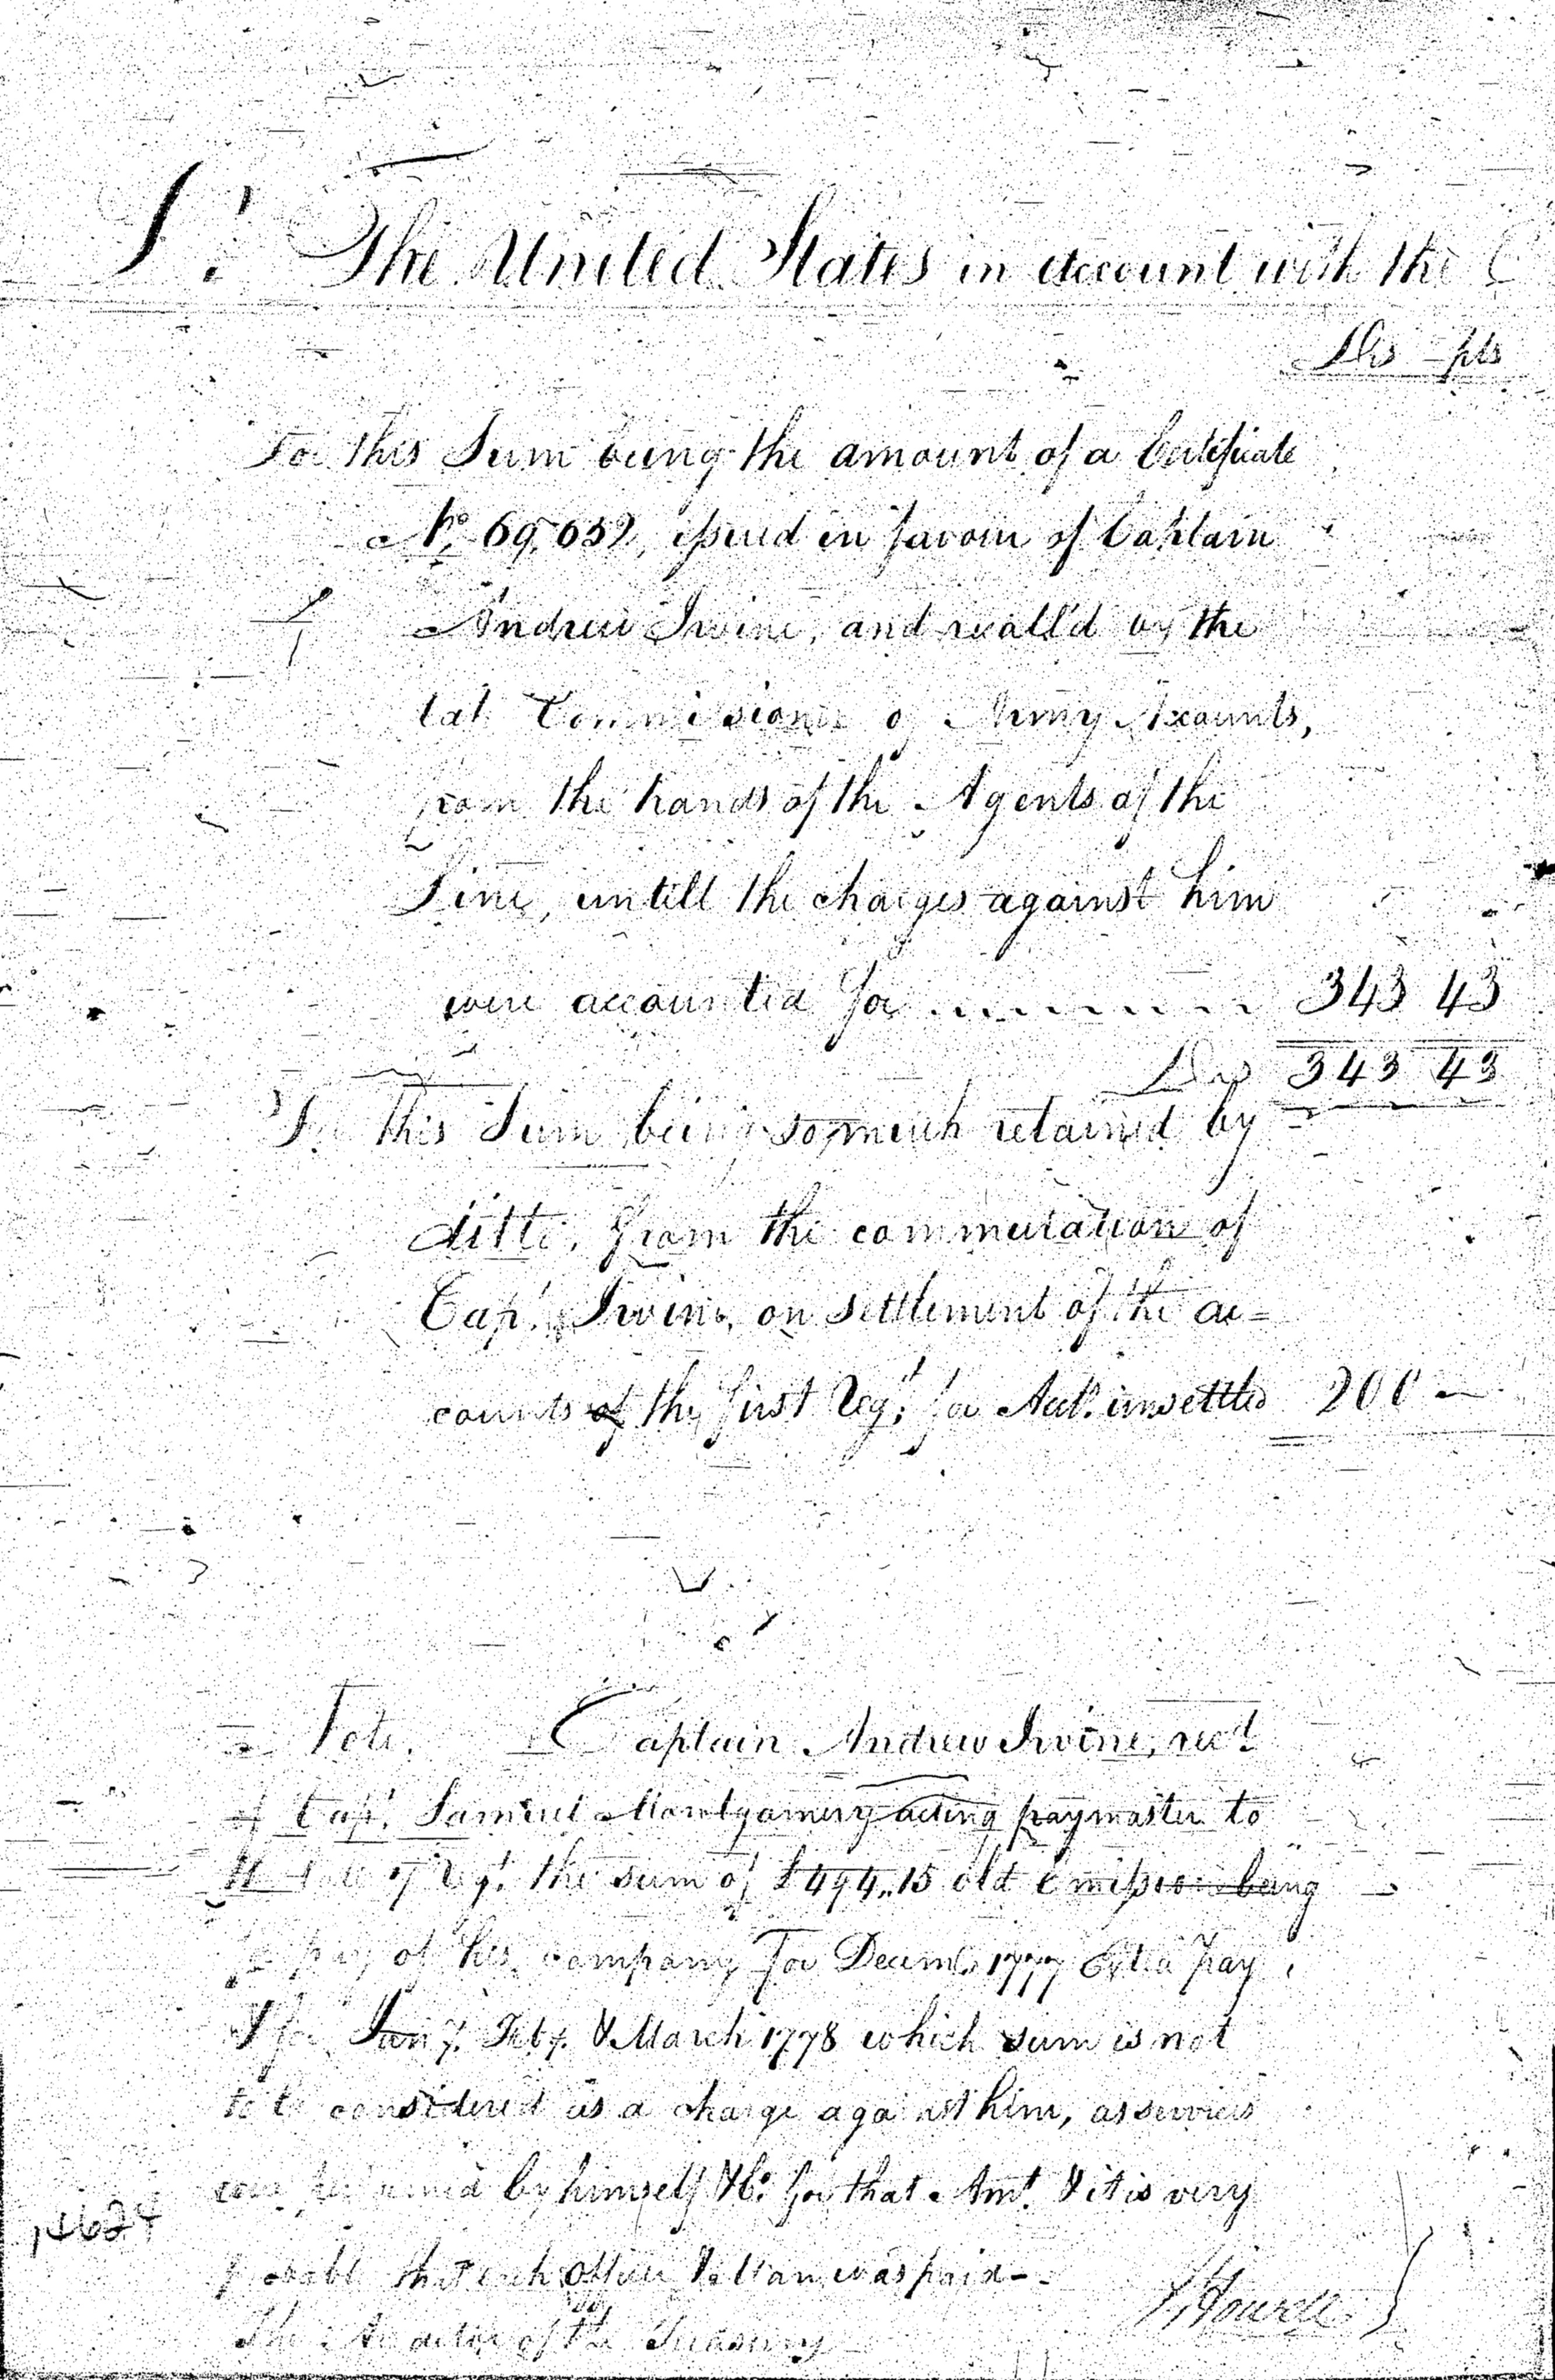 Dr. The United States in account with the
Dlrs pts
To this Sum being the amount of a Certificate
No. 69,059, issued in favour of Captain
Andrew Irvine, and recall'd by the
late Commissioner of Army Accounts,
from the hands of the Agents of the
Line, untill the charges against him
were accounted for 343 43
Drs 343 43
To this Sum being so much retained by
ditto, from the commutation of
Capt. Irvine, on settlement of the ac=
counts of the first Regt. for Acct. unsettled 200 —
Note. Captain Andrew Irvine, recd.
of Capt. Samuel Montgomery acting paymaster to
the Regt. the sum of £494..15 old Emission being
pay of his company for Decemr. 1777 Extra pay,
& for Jany. Feby. & March 1778 which sum is not
to be considered as a charge against him, as services
were performed by himself & Co. for that Amt. & it is very
probable that each Officer & Man was paid —
J Howell
The Auditor of the Treasury
14627